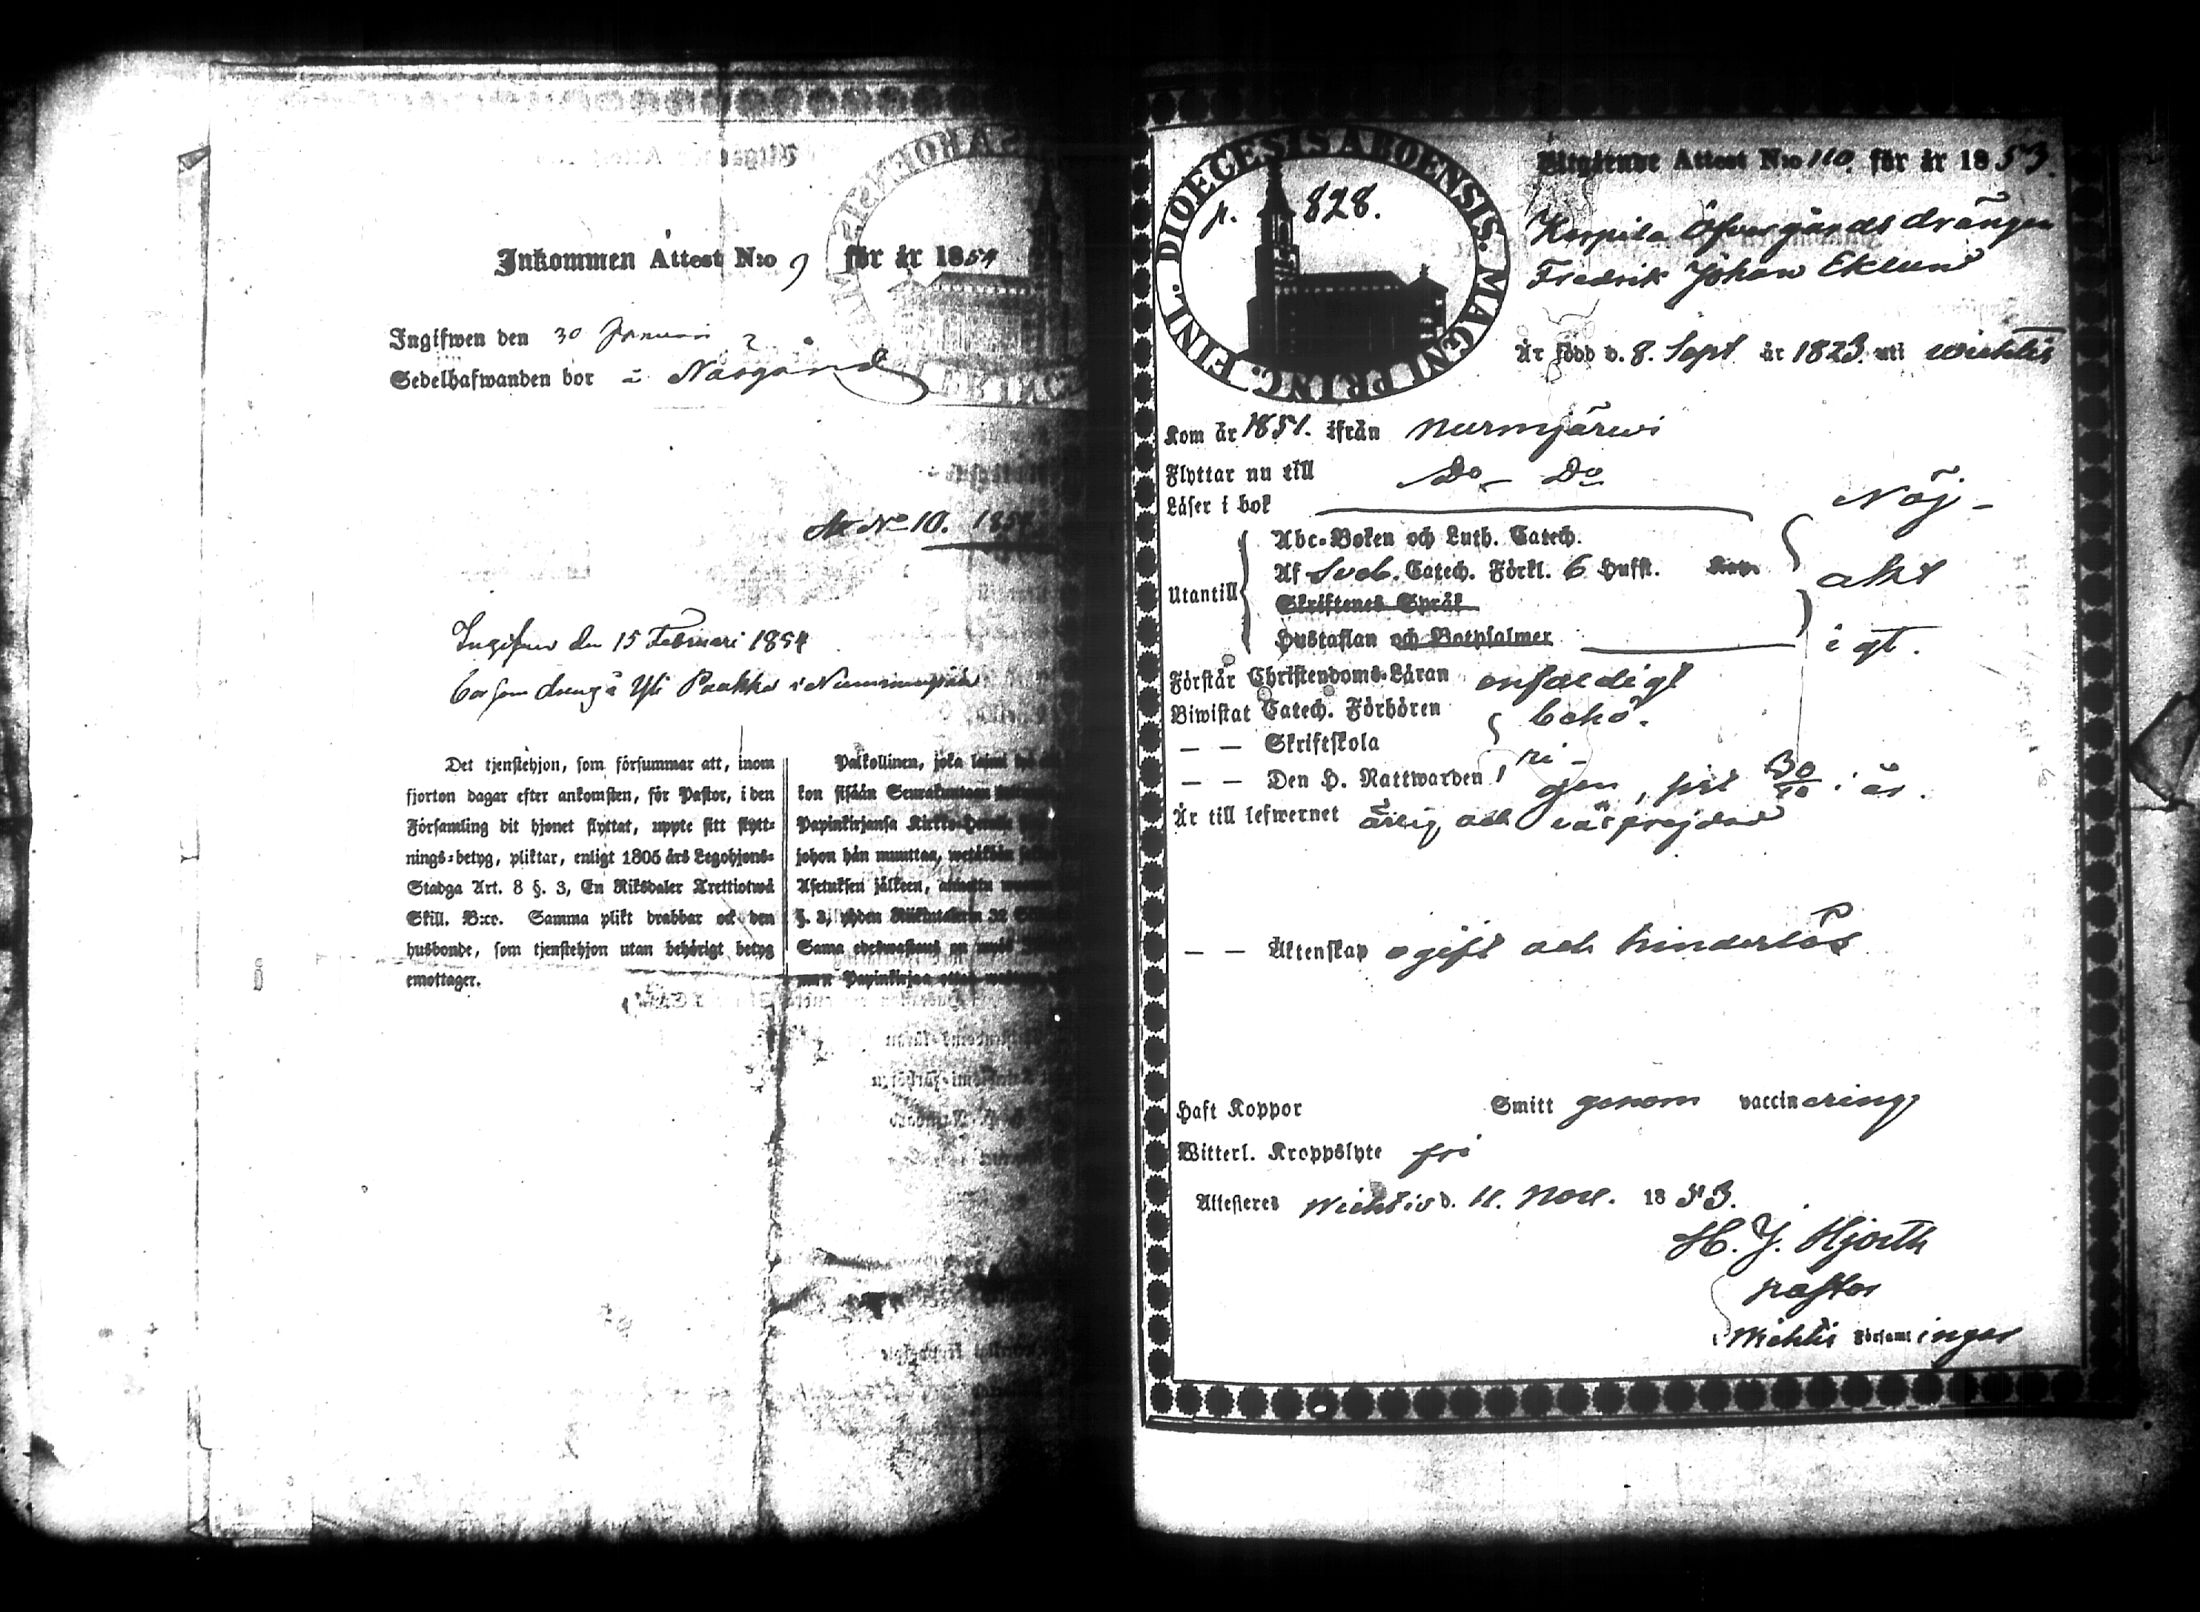 Inkommen Attest N:o 9 för år 1854
Ingifwen den 30 Januari
Sedelhafwanden bor å Någård
Att No 10. 1854.
Ingifwen den 15 Februari 1854
bor som dräng å Yli Paakko i
Det tjenstehjon, som försummar att, inom
fjorton dagar efter ankomsten, för Pastor, i den
Församling dit hjonet flyttat, uppte sitt flytt-
nings-betyg, pliktar, enligt 1805 års Legohjons-
Stadga Art. 8 §. 3, En Riksdaler Trettiotwå
Skill. B:co. Samma plikt drabbar ock den
husbonde, som tjenstehjon utan behörigt betyg
emottager.
Palkollinen, joka
kon sisään Seurakunnan
Papinkirjansa Kirkko-Herralle
johon hän muuttaa, wetäkään
Asetuksen jälkeen,
§. 3, yhden Riikintalerin 32
Sama edeswastaus on myös
nen Papinkirjaa ottaa
DIOECESIS ABOENSIS. MAGNI PRINC. FINL.
p. 828.
Utgående Attest N:o 110. för år 1853.
Korpila Öfvergårds drängen
Fredrik Johan Eklund
Är född d. 8. Sept år 1823. uti Wichtis
Kom år 1851. ifrån Nurmijärwi
Flyttar nu till Do Do
Läser i bok Nöj-
Utantill
Abc-Boken och Luth. Catech.
Af Sveb. Catech. Förkl. 6 Hufst. akt
Skriftenes Språk
Hustaflan och Botpsalmer igt.
Förstår Christendoms-Läran enfaldigt
Biwistat Catech. Förhören behö-
— — Skriftskola ri-
— — Den H. Nattwarden gen, sist 30/10 i år.
Är till lefwernet ärlig och wälfrejdad
— — Äktenskap ogift och hinderlös
Haft Koppor Smitt genom vaccinering
Witterl. Kroppslyte fri
Attesteres Wichtis d. 11. Nov. 1853.
H. J. Hjorth
pastor
Wichtis Församlingar